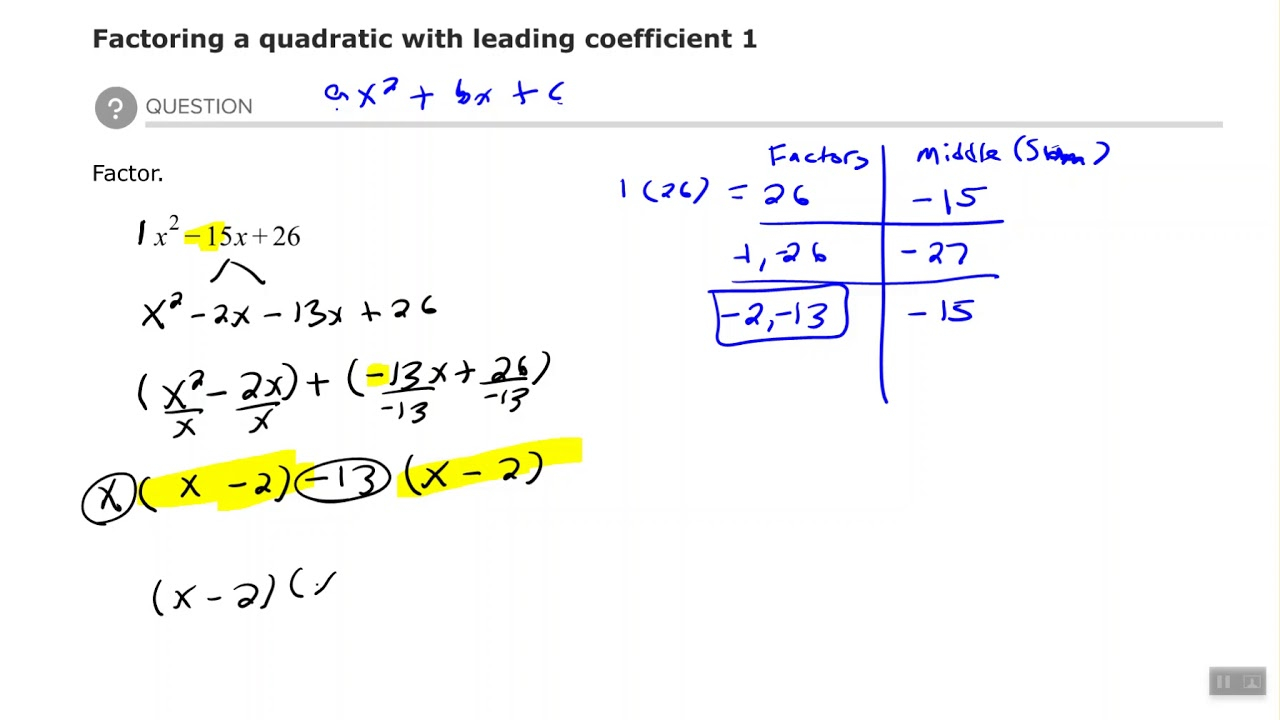 Factoring a quadratic with leading coefficient 1
? QUESTION ax² + bx + c
Factor.
1x² − 15x + 26
x² − 2x − 13x + 26
(x²/x − 2x/x) + (−13x/−13 + 26/−13)
x(x − 2) − 13(x − 2)
(x − 2)(x
Factors Middle (Sum)
1(26) = 26 −15
−1, −26 −27
−2, −13 −15